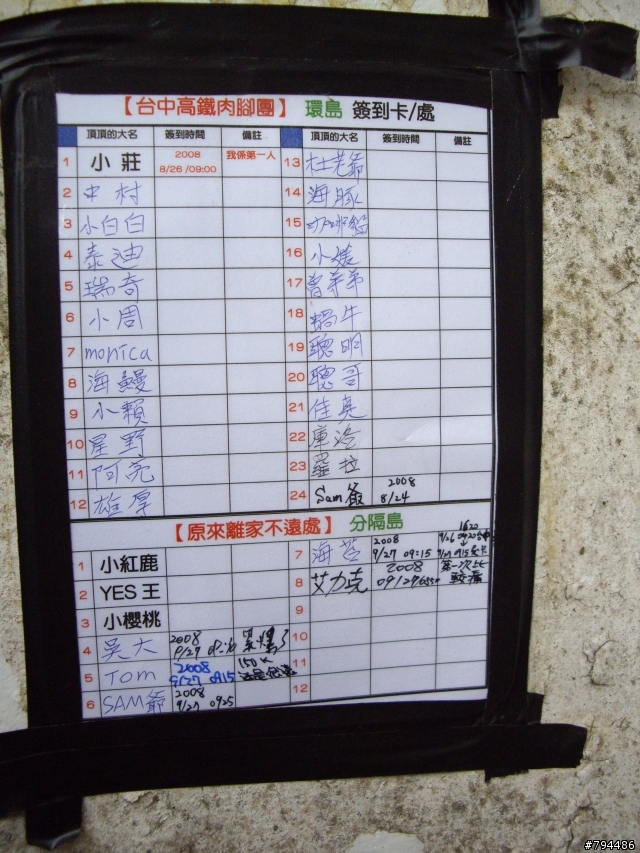 【台中高鐵肉腳團】 環島 簽到卡/處
頂頂的大名 簽到時間 備註 頂頂的大名 簽到時間 備註
1 小莊 2008 8/26 /09:00 我係第一人 13 杜老爺
2 中村 14 海豚
3 小白白 15
4 泰迪 16 小嫆
5 瑞奇 17 曾弟弟
6 小周 18 蝸牛
7 monica 19 聰明
8 海鰻 20 聰哥
9 小賴 21 佳真
10 星野 22
11 阿亮 23 羅拉
12 雄厚 24 Sam爺 2008 8/24
【原來離家不遠處】 分隔島
1 小紅鹿 7 海苔 2008 9/27 09:15
2 YES 王 8 艾力克 2008 第一次
3 小櫻桃 9
4 吳大 2008 9/27 10
5 TOM 2008 9/27 0915 150K 11
6 SAM爺 2008 9/27 0925 12
#794486